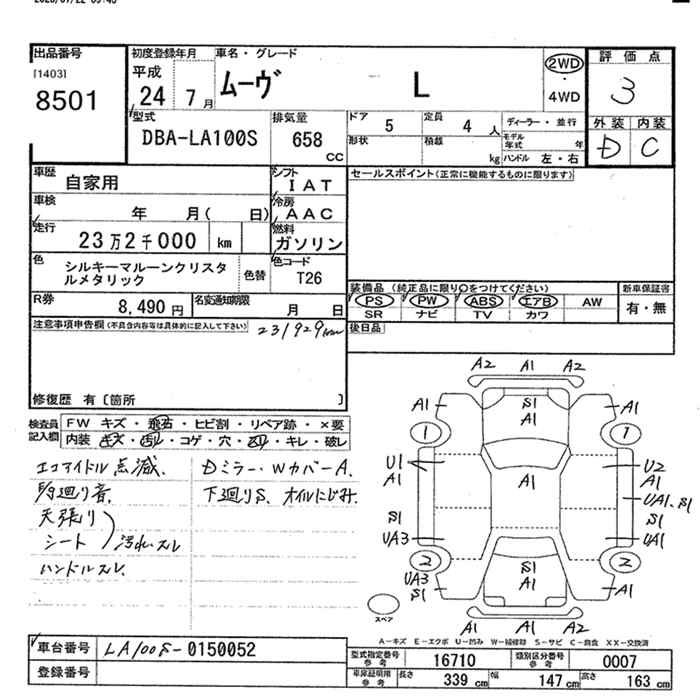 出品番号
[1403]
8501
初度登録年月
平成
24 7 月
車名・グレード
ムーヴ L
2WD
・
4WD
評価点
3
外装 内装
D C
型式
DBA-LA100S
排気量
658
CC
ドア 5
定員 4 人
形状
積載
kg
ディーラー・並行
モデル年式 年
ハンドル 左・右
車歴
自家用
シフト
IAT
車検
年 月( 日)
冷房
AAC
走行
23万2千000 km
燃料
ガソリン
色
シルキーマルーンクリスタ
ルメタリック
色替
色コード
T26
R券
8,490 円
名変通知期限
月 日
セールスポイント(正常に機能するものに限ります)
装備品(純正品に限り○をつけてください)
PS PW ABS エアB AW
SR ナビ TV カワ
新車保証書
有・無
後日品
注意事項申告欄(不具合内容等は具体的に記入して下さい)
231929km
修復歴 有〔箇所 〕
検査員
記入欄
FW キズ・飛石・ヒビ割・リペア跡・×要
内装 キズ・汚レ・コゲ・穴・凹リ・キレ・破レ
エコアイドル点滅.
天張り
シート 汚れ・スレ
ハンドルスレ.
Dミラー・WカバーA.
下廻りS、オイルにじみ.
A2 A1 A2
A1 S1 A1 A1
1 1
U1 A1 A1 U2 A1
UA1、S1
S1 S1
UA3 UA1
2 S1 A1 2
UA3 S1 S1 A1
A1 S1 A1
スペア
A-キズ E-エクボ U-凹み W-補修跡 S-サビ C-腐食 XX-交換済
車台番号 LA100S-0150052
登録番号
型式指定番号
参考
16710
類別区分番号
参考
0007
車庫証明用
参考
長さ 339 cm 幅 147 cm 高さ 163 cm